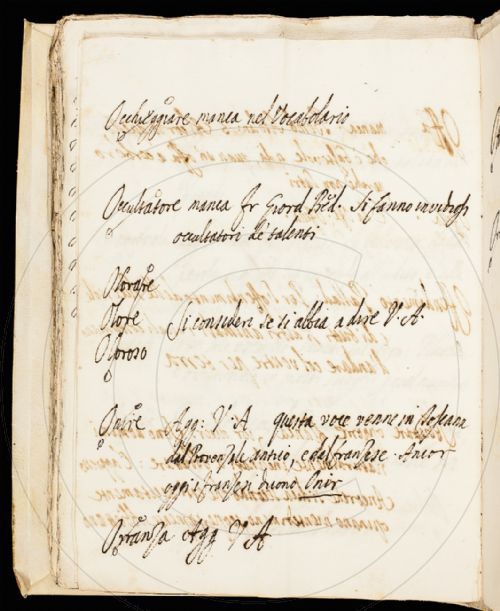 Occhieggiare manca nel Vocabolario
Occultatore manca fr Giord Pred. Si fanno invidiosi
occultatori de talenti
Olorare
Olore Si consideri se si abbia a dire V. A.
Oloroso
Onire Agg: V. A questa voce venne in Toscana
dal Provenzale antico, e dal franzese. Ancor
oggi i franzesi dicono Onir
Orranza Agg V A